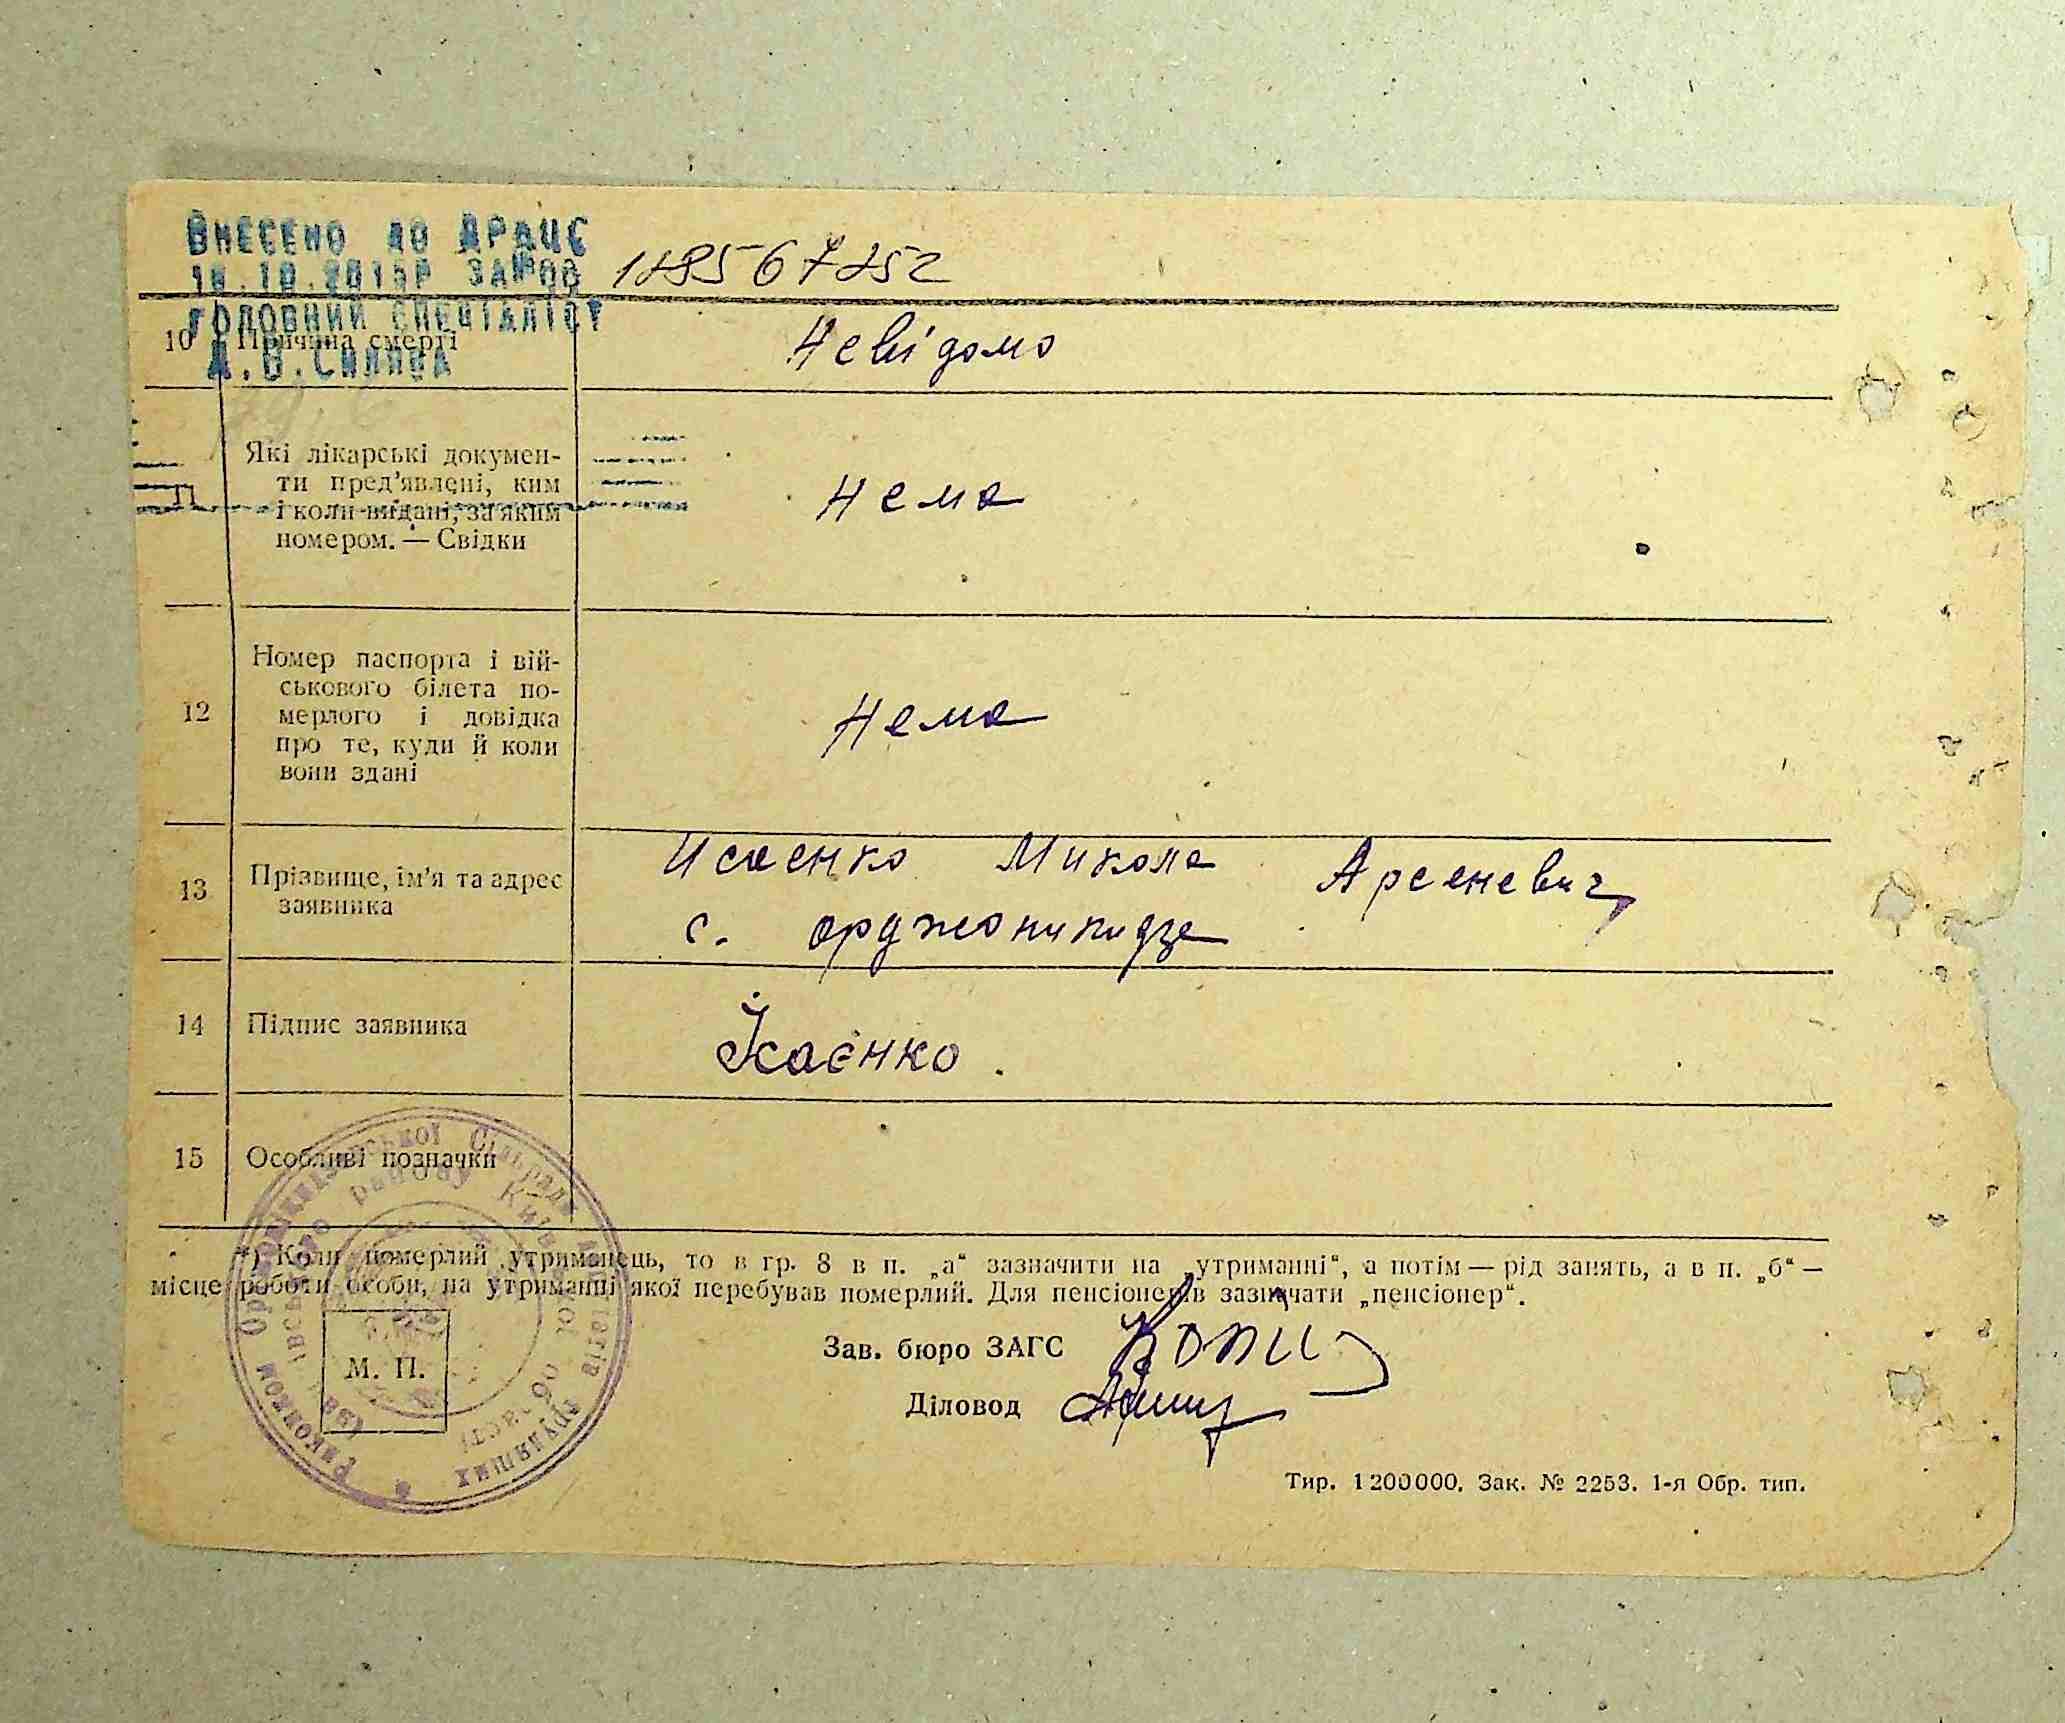 ВНЕСЕНО ДО ДРАЦС
ГОЛОВНИЙ СПЕЦІАЛІСТ
10 Причина смерті Невідомо
Які лікарські докумен-
ти пред'явлені, ким
і коли видані, за яким
номером. — Свідки
Нема
Номер паспорта і вій-
ськового білета по-
12 мерлого і довідка
про те, куди й коли
вони здані
Нема
13 Прізвище, ім'я та адрес
заявника
Исаенко Микола Арсеневич
с. орджоникидзе
14 Підпис заявника Ісаєнко.
15 Особливі позначки
*) Коли померлий утриманець, то в гр. 8 в п. „а“ зазначити на „утриманні“, а потім — рід занять, а в п. „б“ —
місце роботи особи, на утриманні якої перебував померлий. Для пенсіонерів зазначати „пенсіонер“.
Зав. бюро ЗАГС
М. П.
Діловод
Тир. 1200000. Зак. № 2253. 1-я Обр. тип.